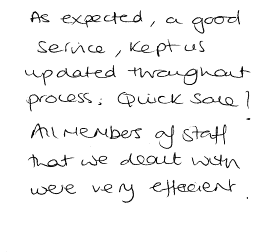 As expected, a good
service, kept us
updated throughout
process. Quick sale!
All members of staff
that we dealt with
were very effecient.